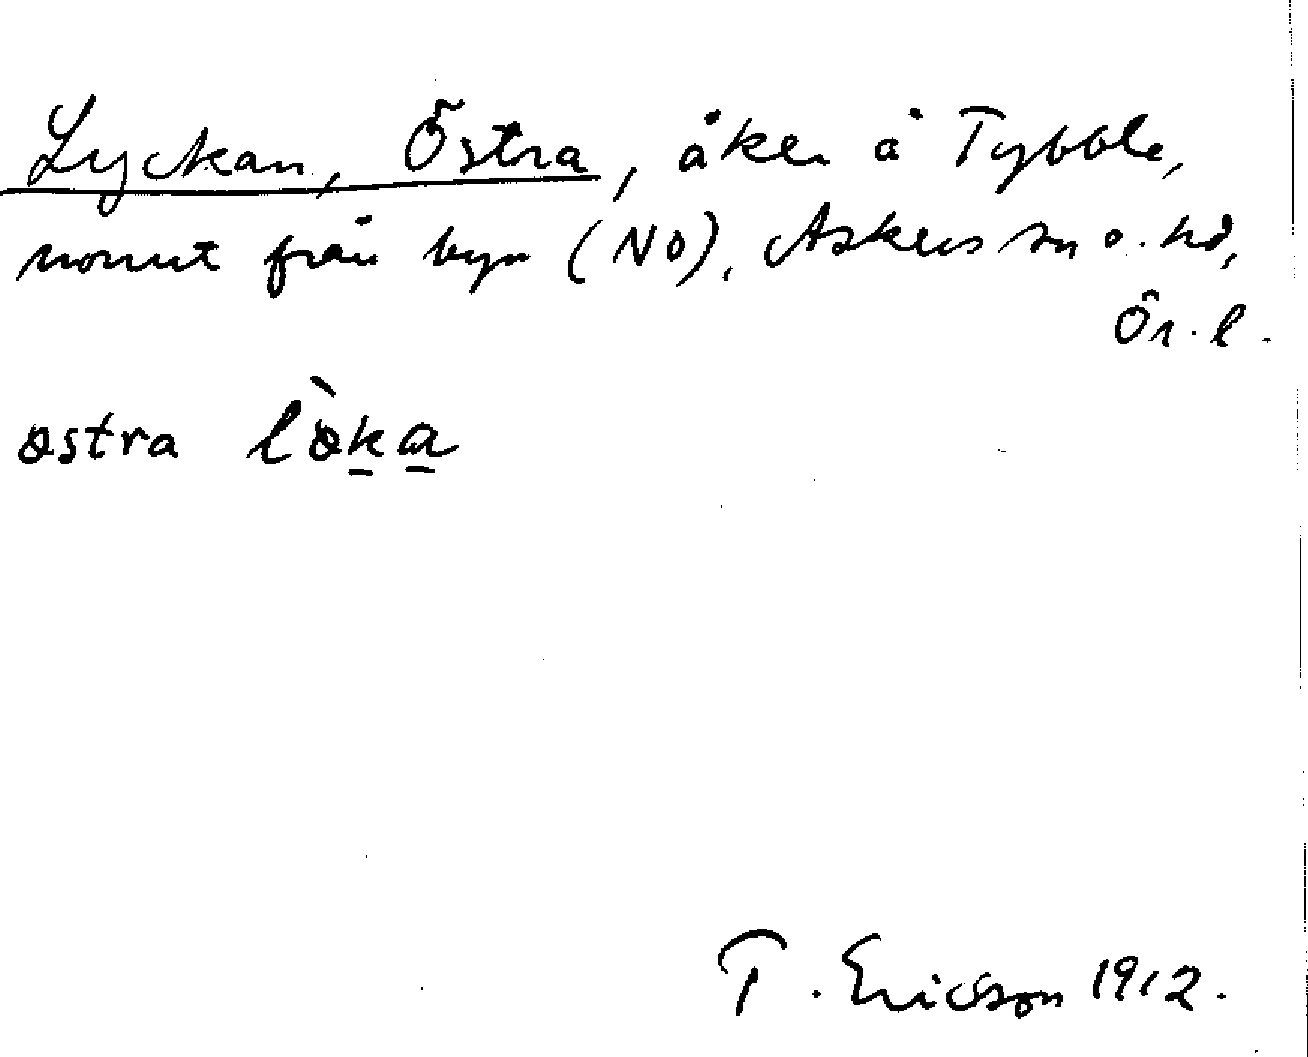 Lyckan, Östra, åker å Tybble,
norrut från byn (NO), Askers sn o. hd,
Ör. l.
østra lø̀ka
T. Ericsson 1912.